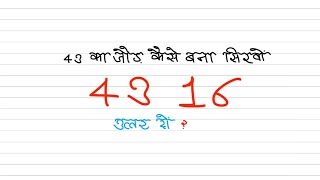 43 का जौड कैसे बना सिखो
43 16
उत्तर दो ?